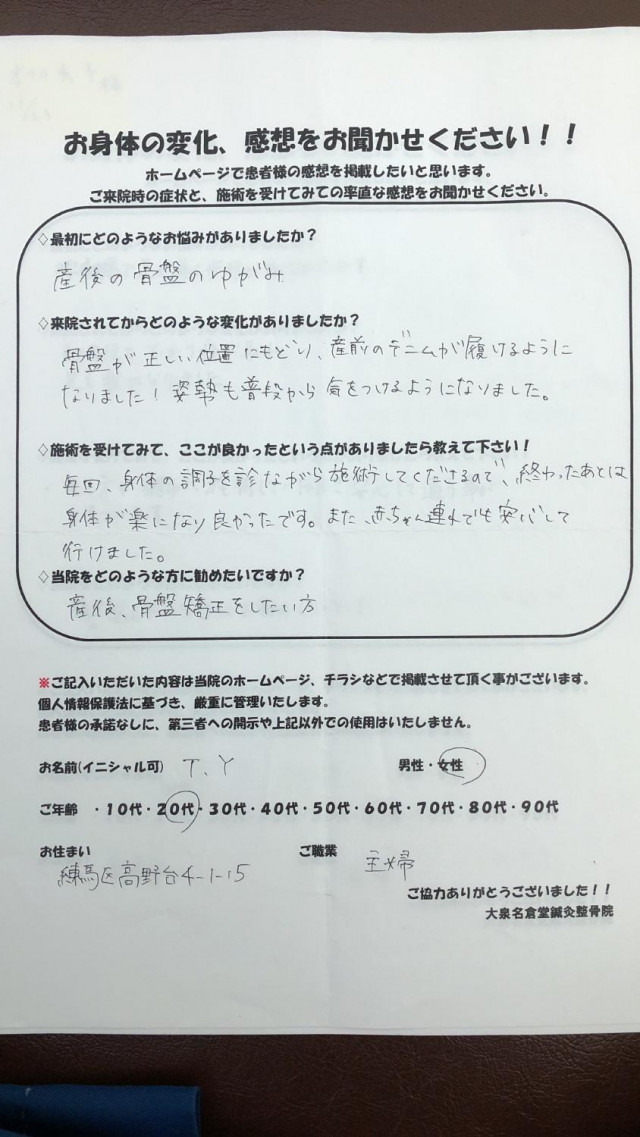 お身体の変化、感想をお聞かせください！！
ホームページで患者様の感想を掲載したいと思います。
ご来院時の症状と、施術を受けてみての率直な感想をお聞かせください。
◇最初にどのようなお悩みがありましたか？
産後の骨盤のゆがみ
◇来院されてからどのような変化がありましたか？
骨盤が正しい位置にもどり、産前のデニムが履けるように
なりました！姿勢も普段から気をつけるようになりました。
◇施術を受けてみて、ここが良かったという点がありましたら教えて下さい！
毎回、身体の調子を診ながら施術してくださるので、終わったあとは
身体が楽になり良かったです。また、赤ちゃん連れでも安心して
行けました。
◇当院をどのような方に勧めたいですか？
産後、骨盤矯正をしたい方
※ご記入いただいた内容は当院のホームページ、チラシなどで掲載させて頂く事がございます。
個人情報保護法に基づき、厳重に管理いたします。
患者様の承諾なしに、第三者への開示や上記以外での使用はいたしません。
お名前(イニシャル可) T、Y 男性・女性
ご年齢 ・10代・20代・30代・40代・50代・60代・70代・80代・90代
お住まい ご職業
練馬区高野台4-1-15 主婦
ご協力ありがとうございました！！
大泉名倉堂鍼灸整骨院